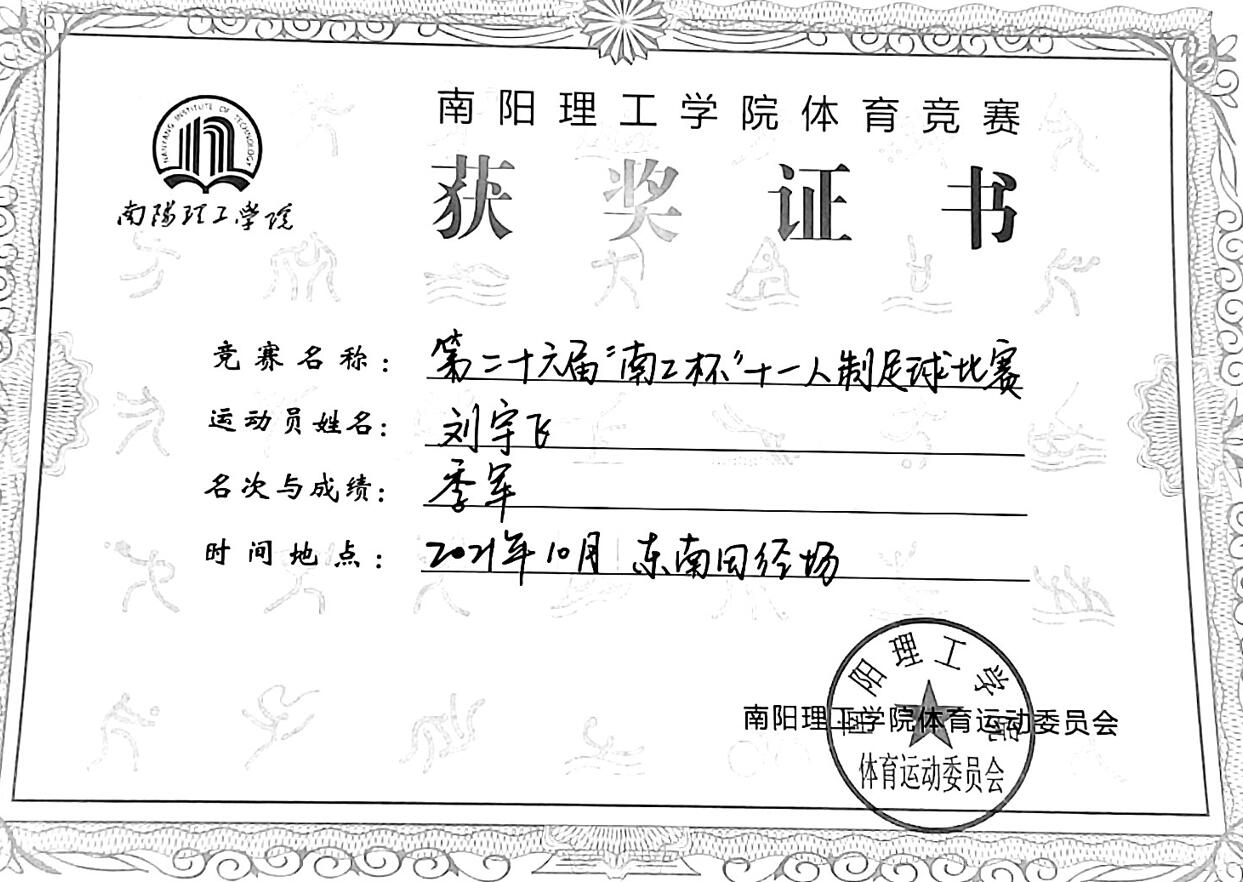 南阳理工学院体育竞赛
NANYANG INSTITUTE OF TECHNOLOGY
南陽理工学院
获奖证书
竞赛名称：第二十六届“南工杯”十一人制足球比赛
运动员姓名：刘宇飞
名次与成绩：季军
时间地点：2021年10月 东南田径场
南阳理工学院体育运动委员会
南阳理工学院
体育运动委员会